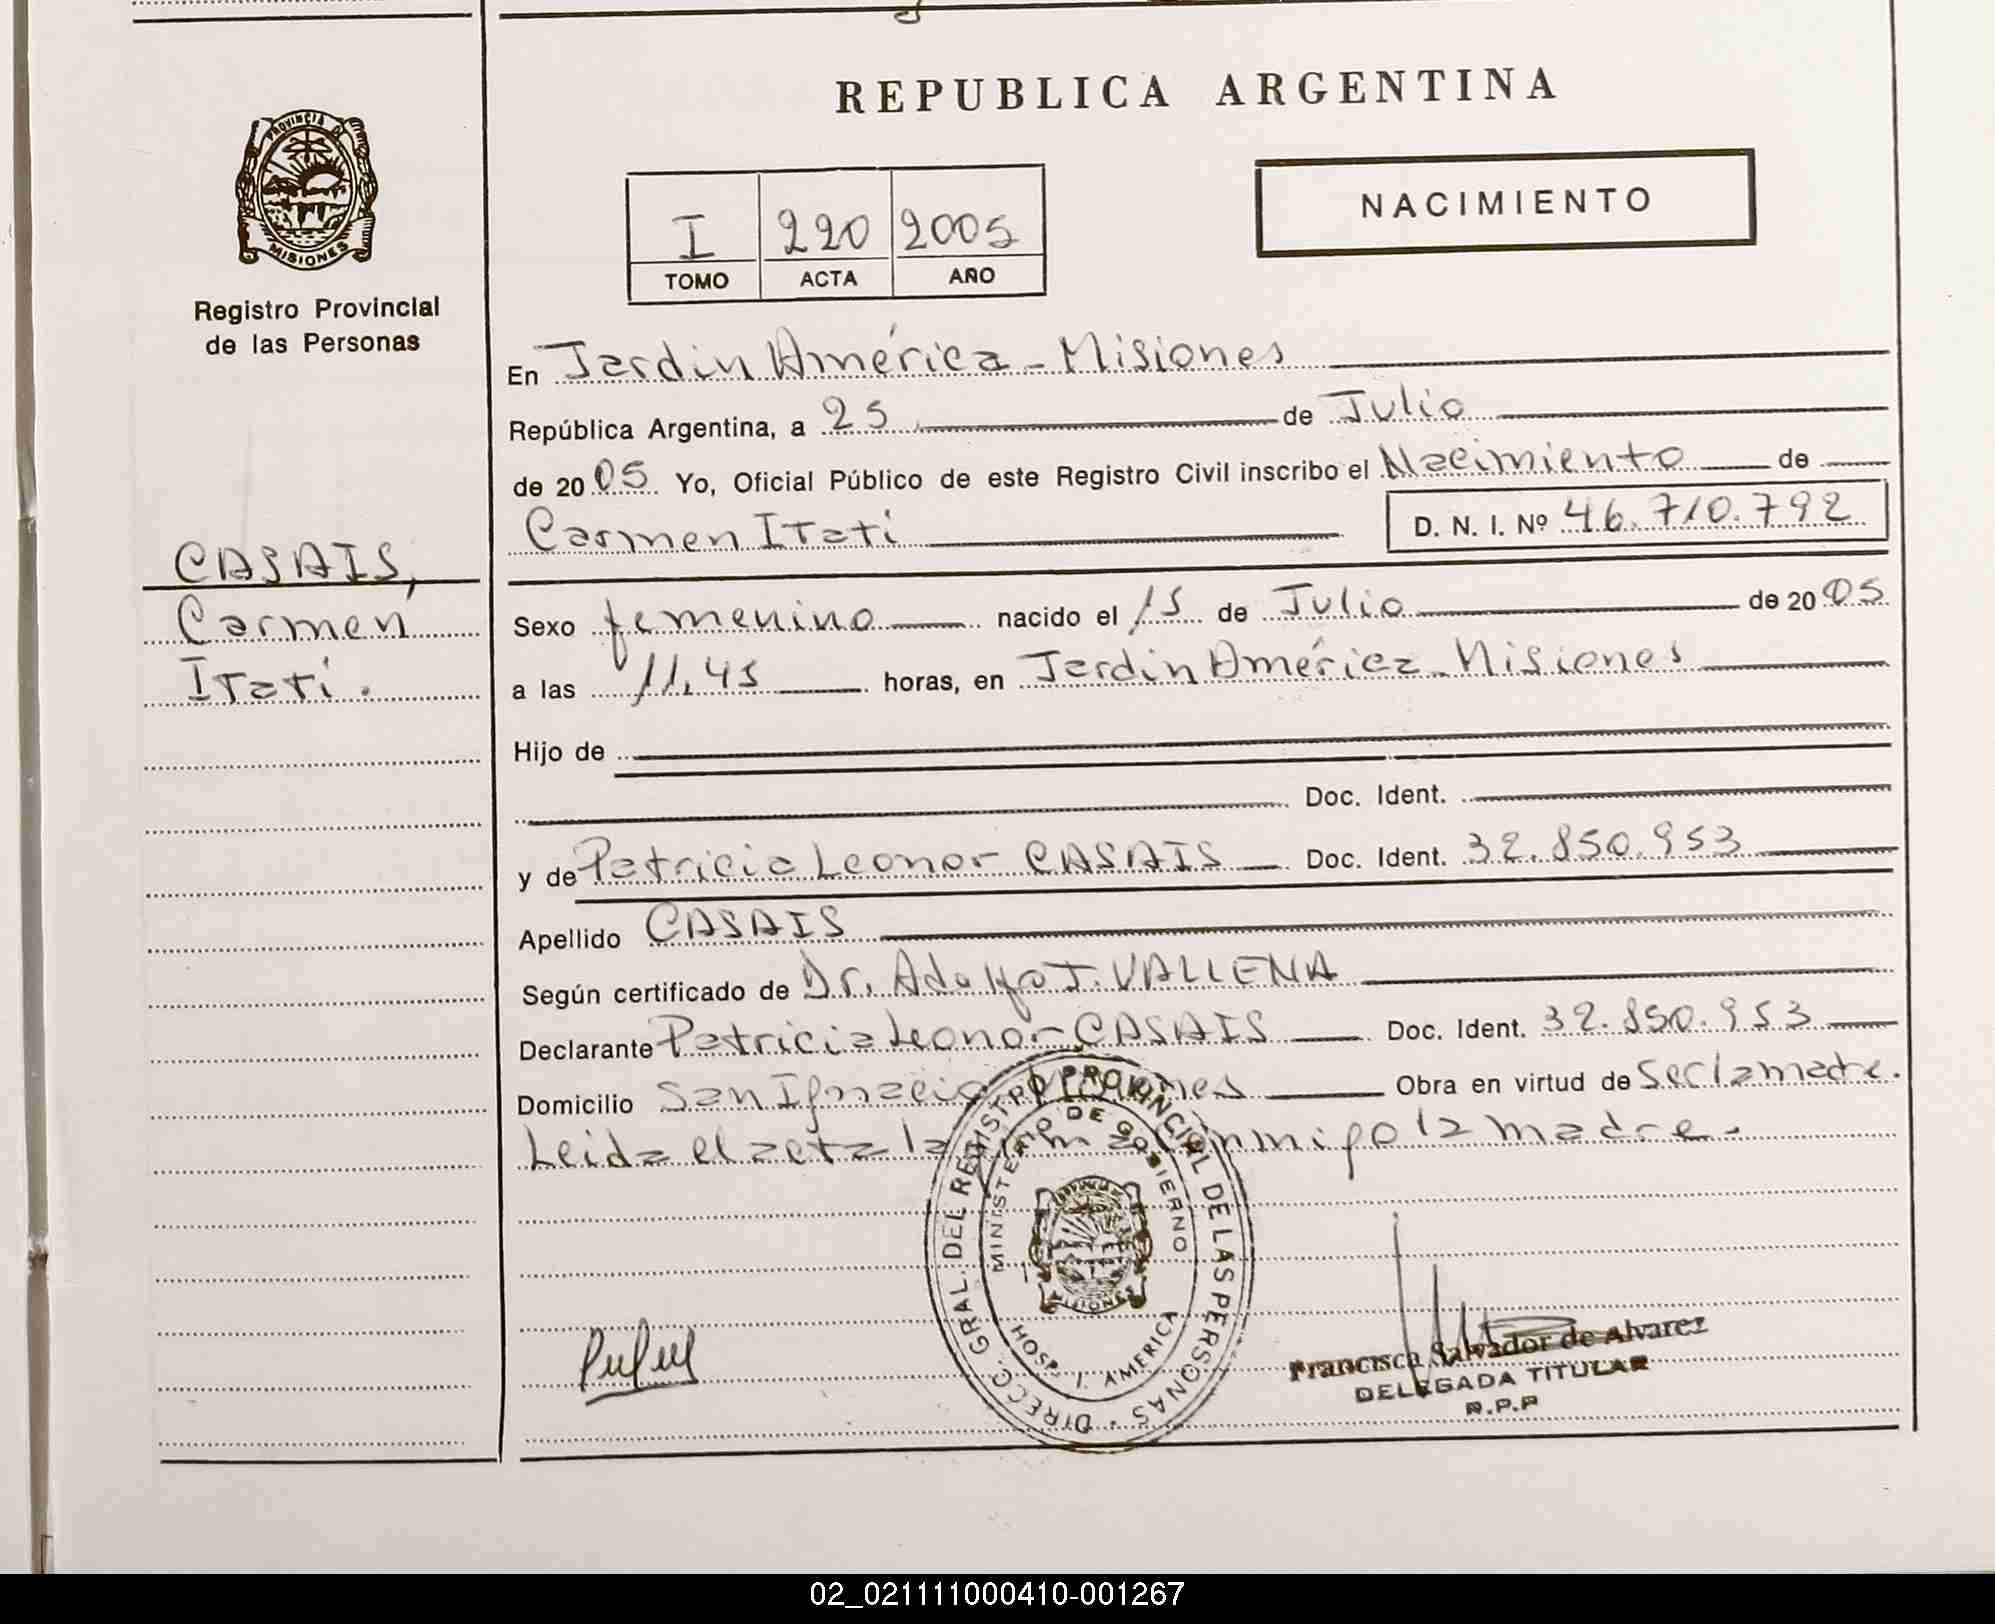 REPUBLICA ARGENTINA
PROVINCIA DE
MISIONES
Registro Provincial
de las Personas
I 220 2005
TOMO ACTA AÑO
NACIMIENTO
En Jardin América - Misiones
República Argentina, a 25 de Julio
de 2005 Yo, Oficial Público de este Registro Civil inscribo el Nacimiento de
Carmen Itati D. N. I. Nº 46.710.792
CASAIS,
Carmen
Itati.
Sexo femenino nacido el 15 de Julio de 2005
a las 11,45 horas, en Jardin América - Misiones
Hijo de
Doc. Ident.
y de Patricia Leonor CASAIS Doc. Ident. 32.850.953
Apellido CASAIS
Según certificado de Dr. Adolfo J. VALLENA
Declarante Patricia Leonor CASAIS Doc. Ident. 32.850.953
Domicilio San Ignacio Misiones Obra en virtud de Ser la madre.
Leida el acta la firma conmigo la madre.
DIRECC. GRAL. DEL REGISTRO PROVINCIAL DE LAS PERSONAS
MINISTERIO DE GOBIERNO
MISIONES
HOSP. J. AMERICA
Francisca Salvador de Alvarez
DELEGADA TITULAR
R.P.P
02_021111000410-001267